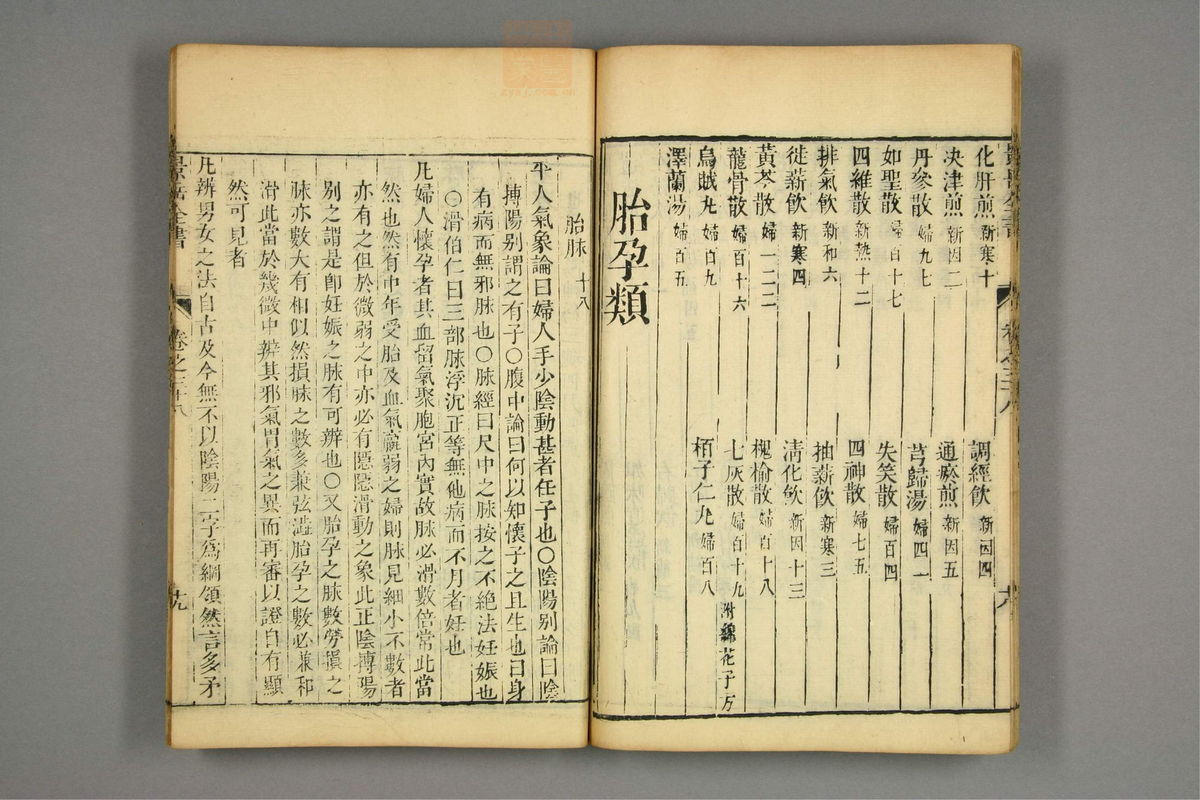 化肝煎 新寒十
調經飲 新因四
决津煎 新因二
通瘀煎 新因五
丹參散 婦九七
芎歸湯 婦四一
如聖散 婦百十七
失笑散 婦百四
四維散 新熱十二
四神散 婦七五
排氣飲 新和六
抽薪飲 新寒三
徙薪飲 新寒四
淸化飲 新因十三
黃芩散 婦一二二
槐榆散 婦百十八
龍骨散 婦百十六
七灰散 婦百十九 附綿花子方
烏賊丸 婦百九
栢子仁丸 婦百八
澤蘭湯 婦百五
胎孕類
胎脉 十八
平人氣象論曰婦人手少陰動甚者任子也○陰陽别論曰陰
搏陽别謂之有子○腹中論曰何以知懷子之且生也曰身
有病而無邪脉也○脉經曰尺中之脉按之不絶法妊娠也
○滑伯仁曰三部脉浮沉正等無他病而不月者妊也
凡婦人懷孕者其血留氣聚胞宮內實故脉必滑數倍常此當
然也然有中年受胎及血氣羸弱之婦則脉見細小不數者
亦有之但於微弱之中亦必有隱隱滑動之象此正陰搏陽
别之謂是卽妊娠之脉有可辨也○又胎孕之脉數勞損之
脉亦數大有相似然損脉之數多兼弦澁胎孕之數必兼和
滑此當於幾微中辨其邪氣胃氣之異而再審以證自有顯
然可見者
凡辨男女之法自古及今無不以陰陽二字爲綱領然言多矛
景岳全書 卷之三十八 十九